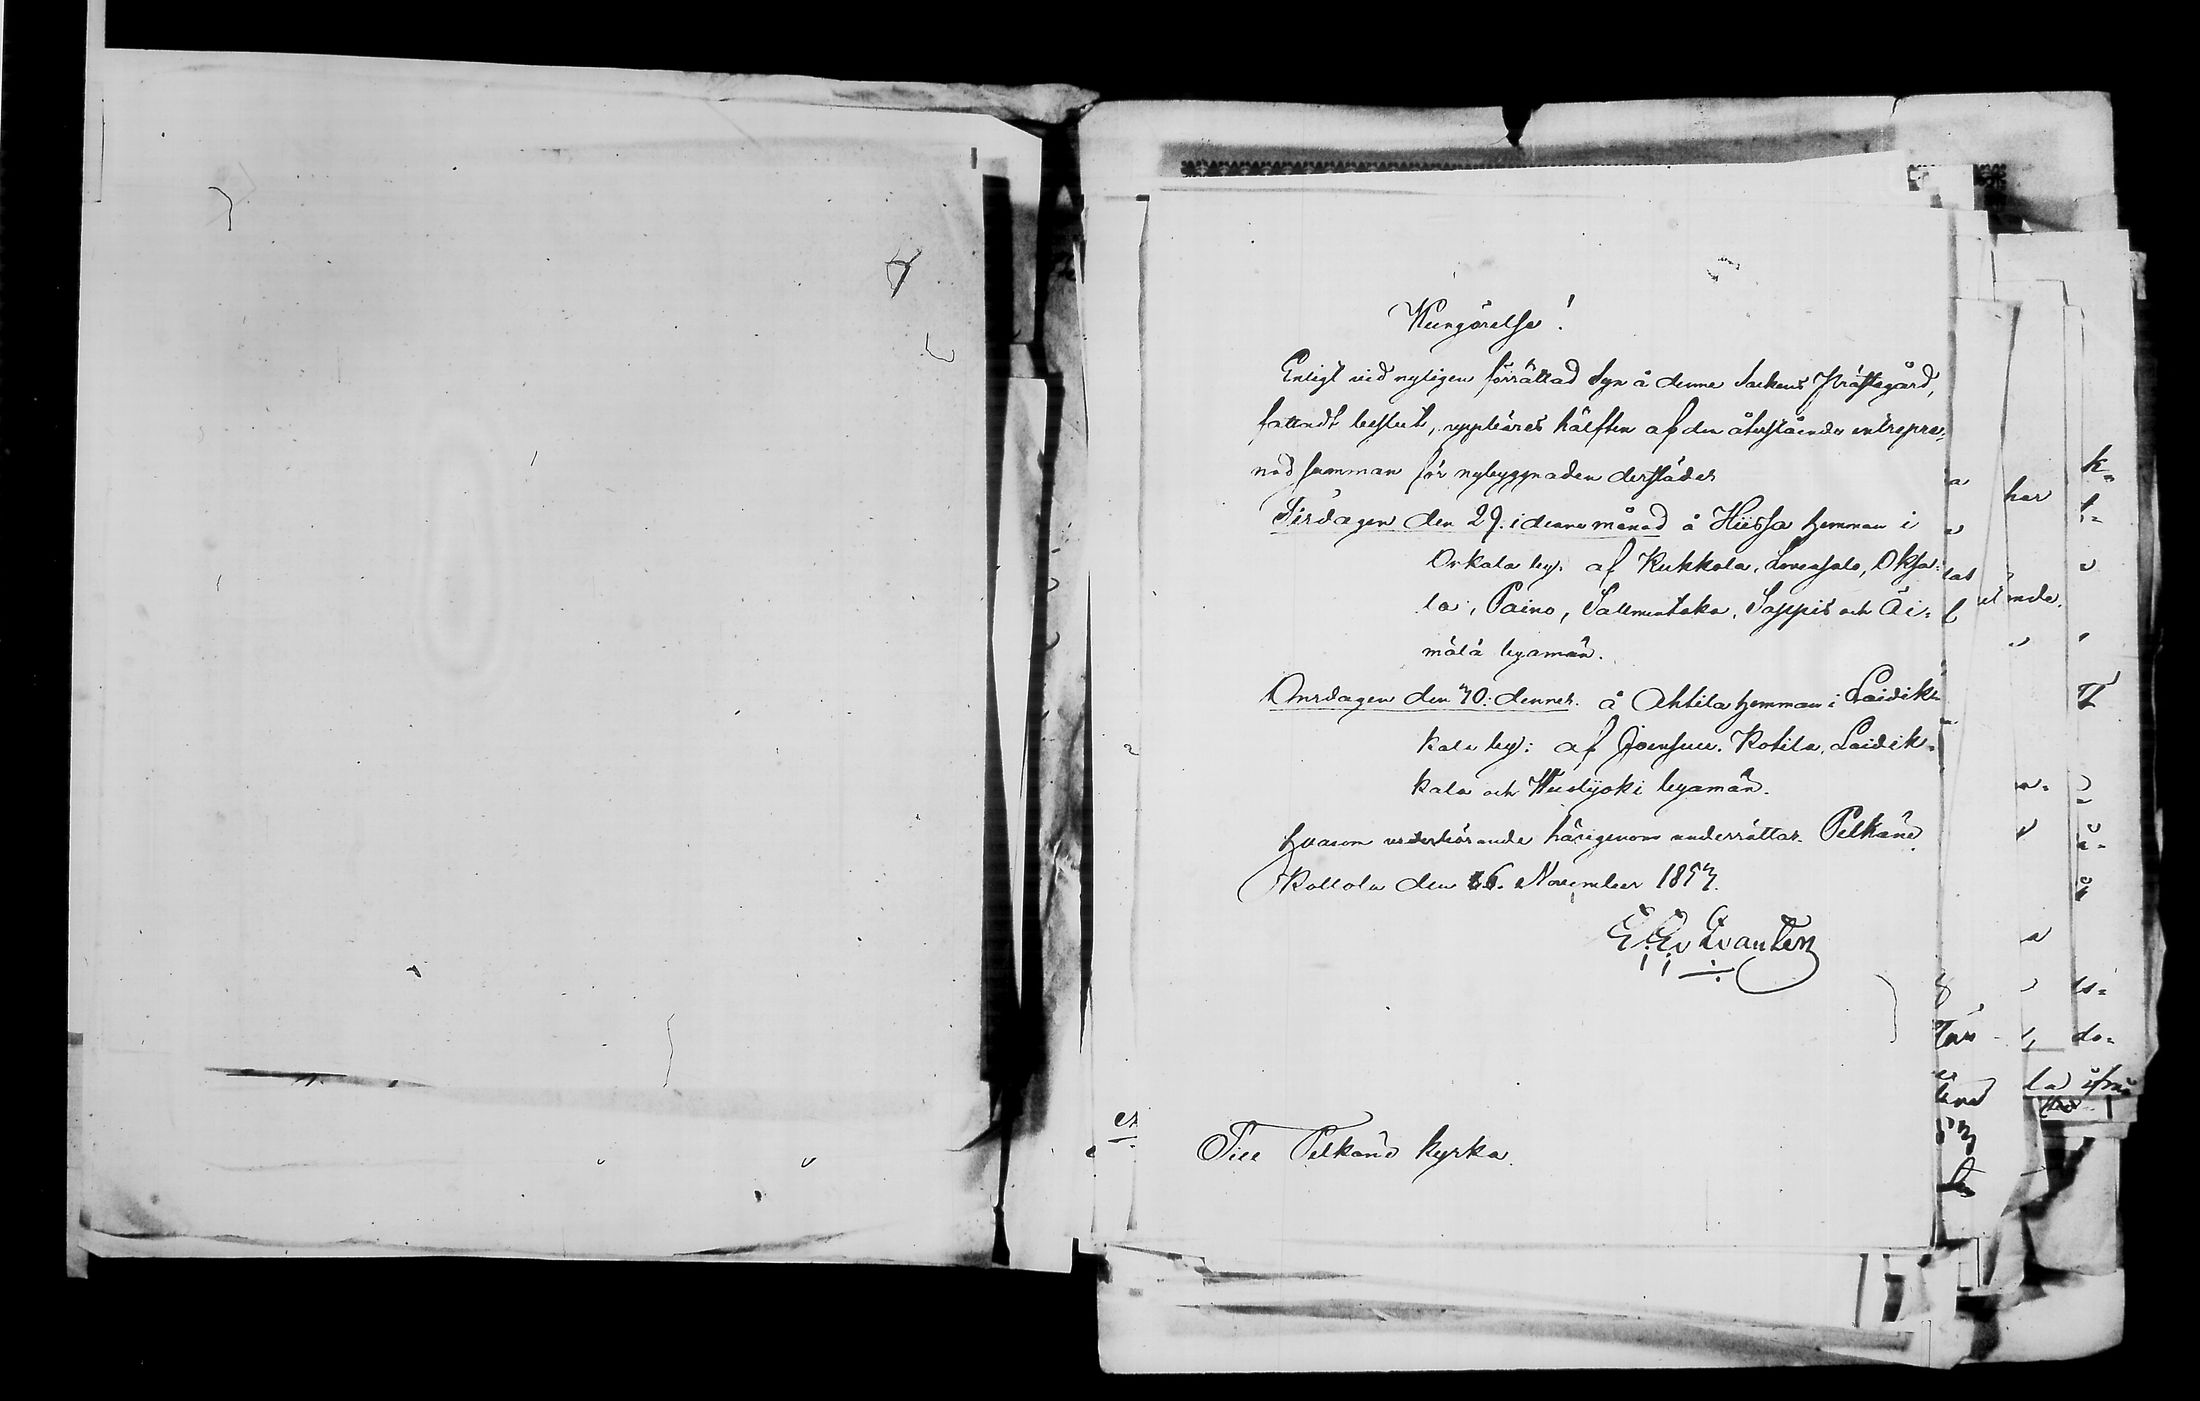 Kungörelse!
Enligt vid nyligen förrättad Syn å denne Sockens Prästegård,
fattadt beslut, uppbäres hälften af den återstående entrepre-
nad summan för nybyggnaden derstädes
Tisdagen den 29. i denne månad å Hiissa hemman i
Orkala by: af Kukkola, Lovensalo, Oksa-
la, Paino, Salmentaka, Sappis och Äi-
mälä byamän.
Onsdagen den 30. dennes. å Ahtila hemman i Laidik-
kala by: af Joensuu, Kotila, Laidik-
kala och Uustyoki byamän.
hvarom vederbörande härigenom underrättas. Pelkäne
Kottola den 16. November 1853.
Till Pelkäne kyrka.